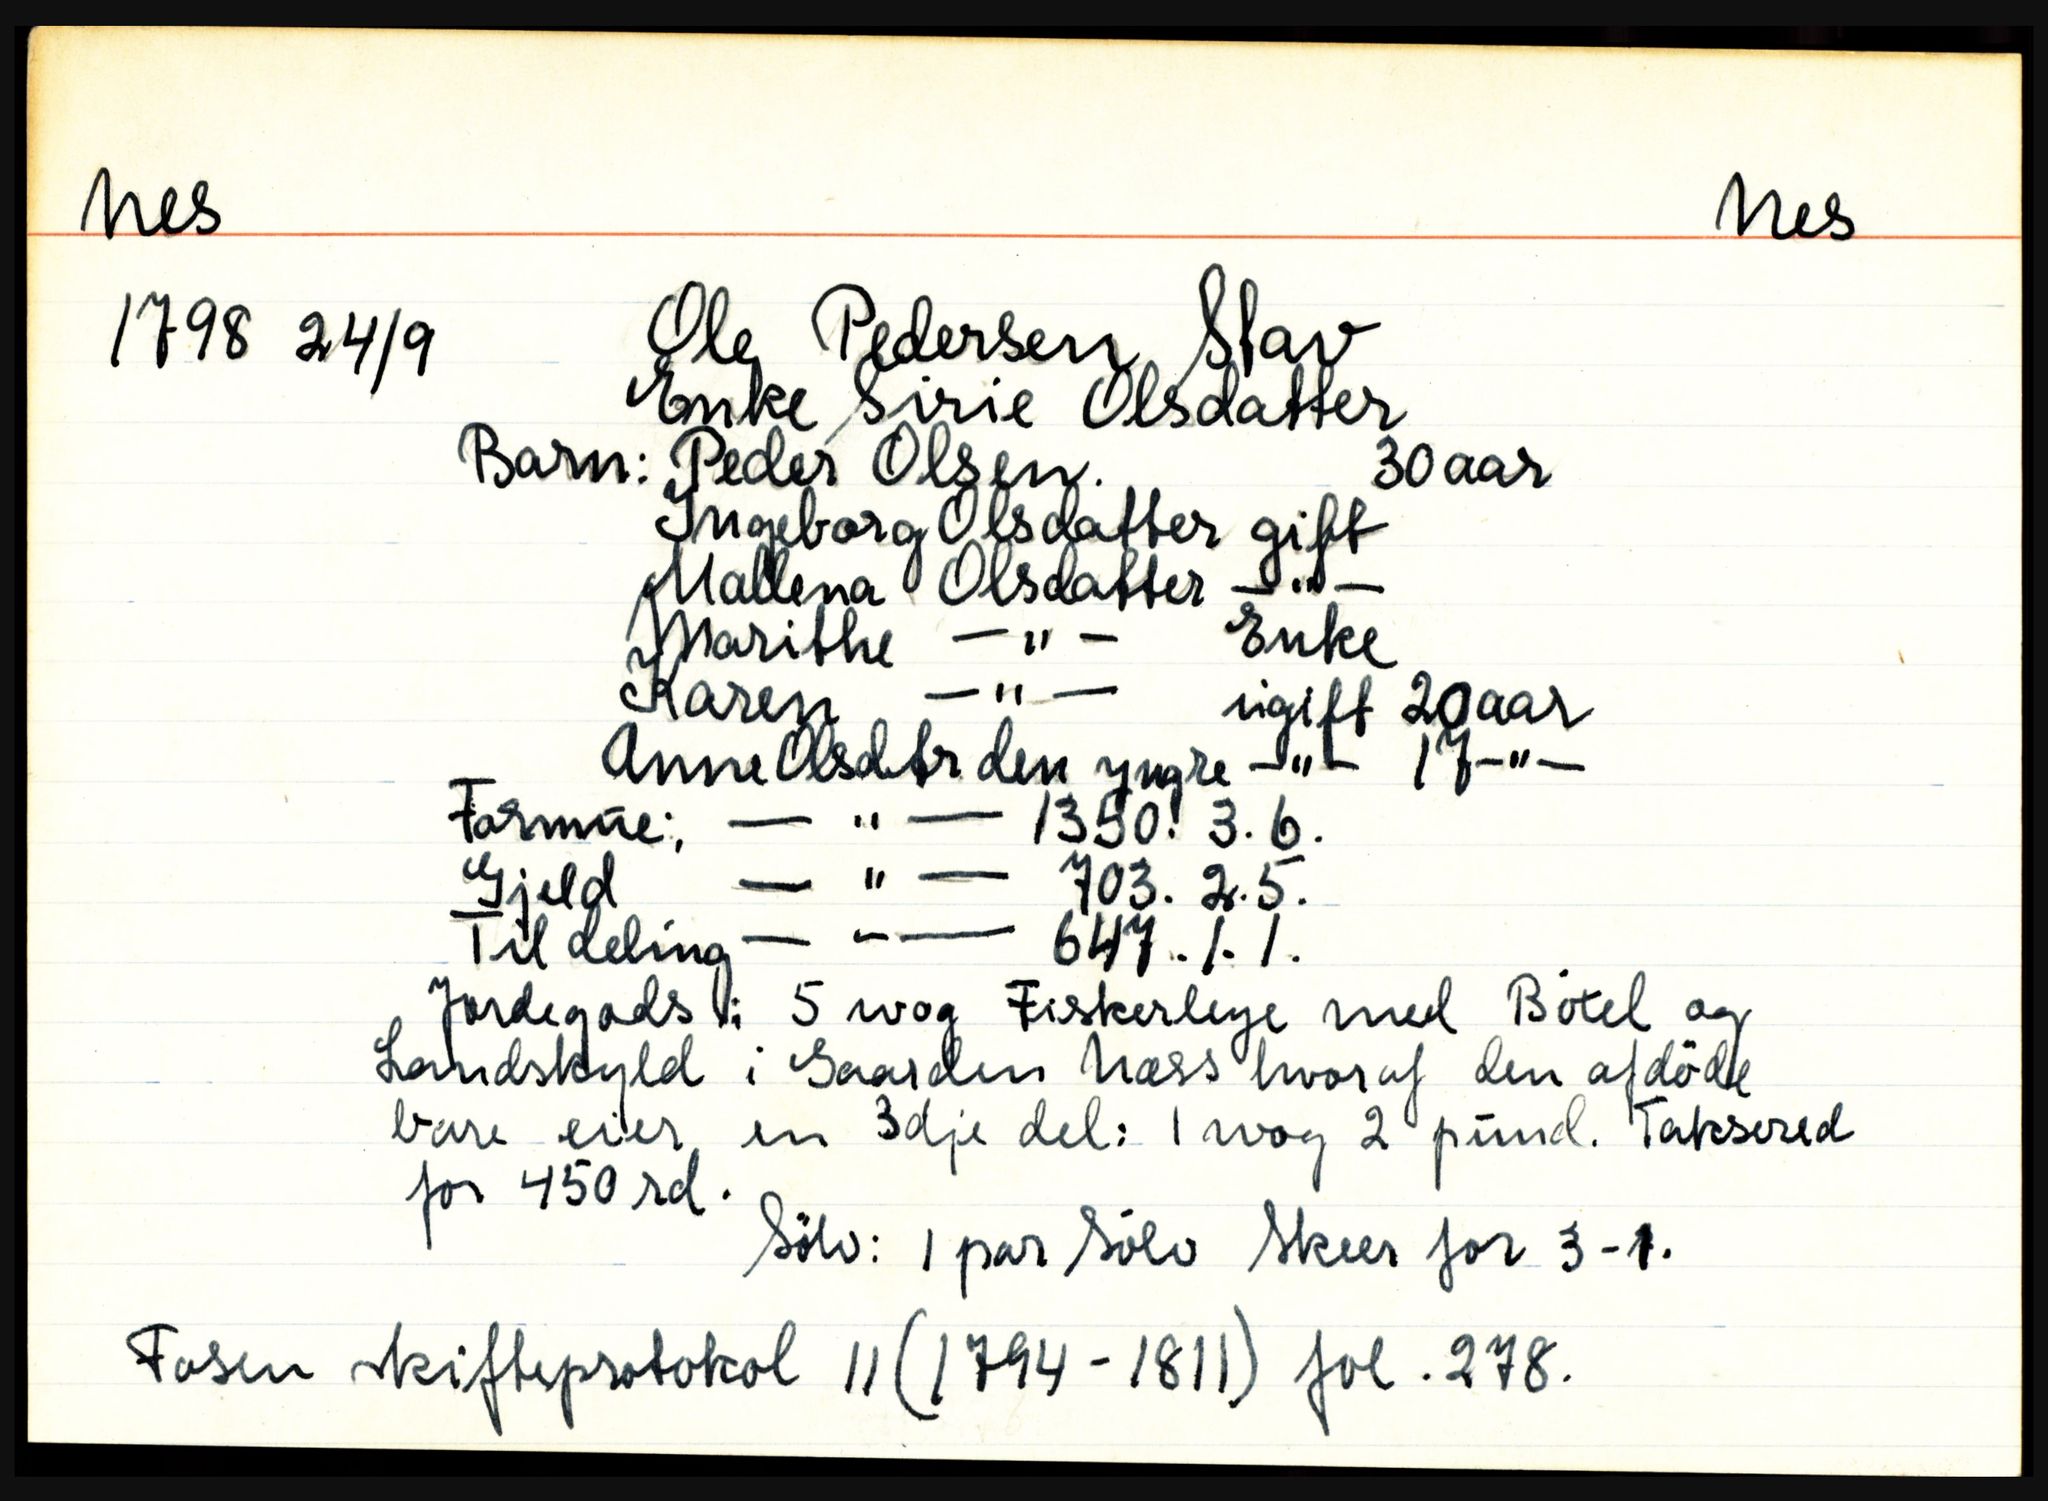 Nes Nes
1798 24/9 Ole Pedersen Stav
Enke Sirie Olsdatter
Barn: Peder Olsen. 30 aar
Ingeborg Olsdatter gift
Mallena Olsdatter — " —
Marithe — " — Enke
Karen — " — ugift 20 aar
Anne Olsdtr den yngre — " — 17 — " —
Formue: — " — 1350. 3. 6.
Gjeld — " — 703. 2. 5.
Til deling — " — 647. 1. 1.
Jordegods: 5 wog Fiskerleye med Bötel og
Landskyld i Gaarden Næss hvoraf den afdöde
bare eier en 3dje del: 1 wog 2 pund. Taksered
for 450 rd.
Sölv: 1 par Sölv Skeer for 3-1.
Fosen skifteprotokol 11 (1794-1811) fol. 278.